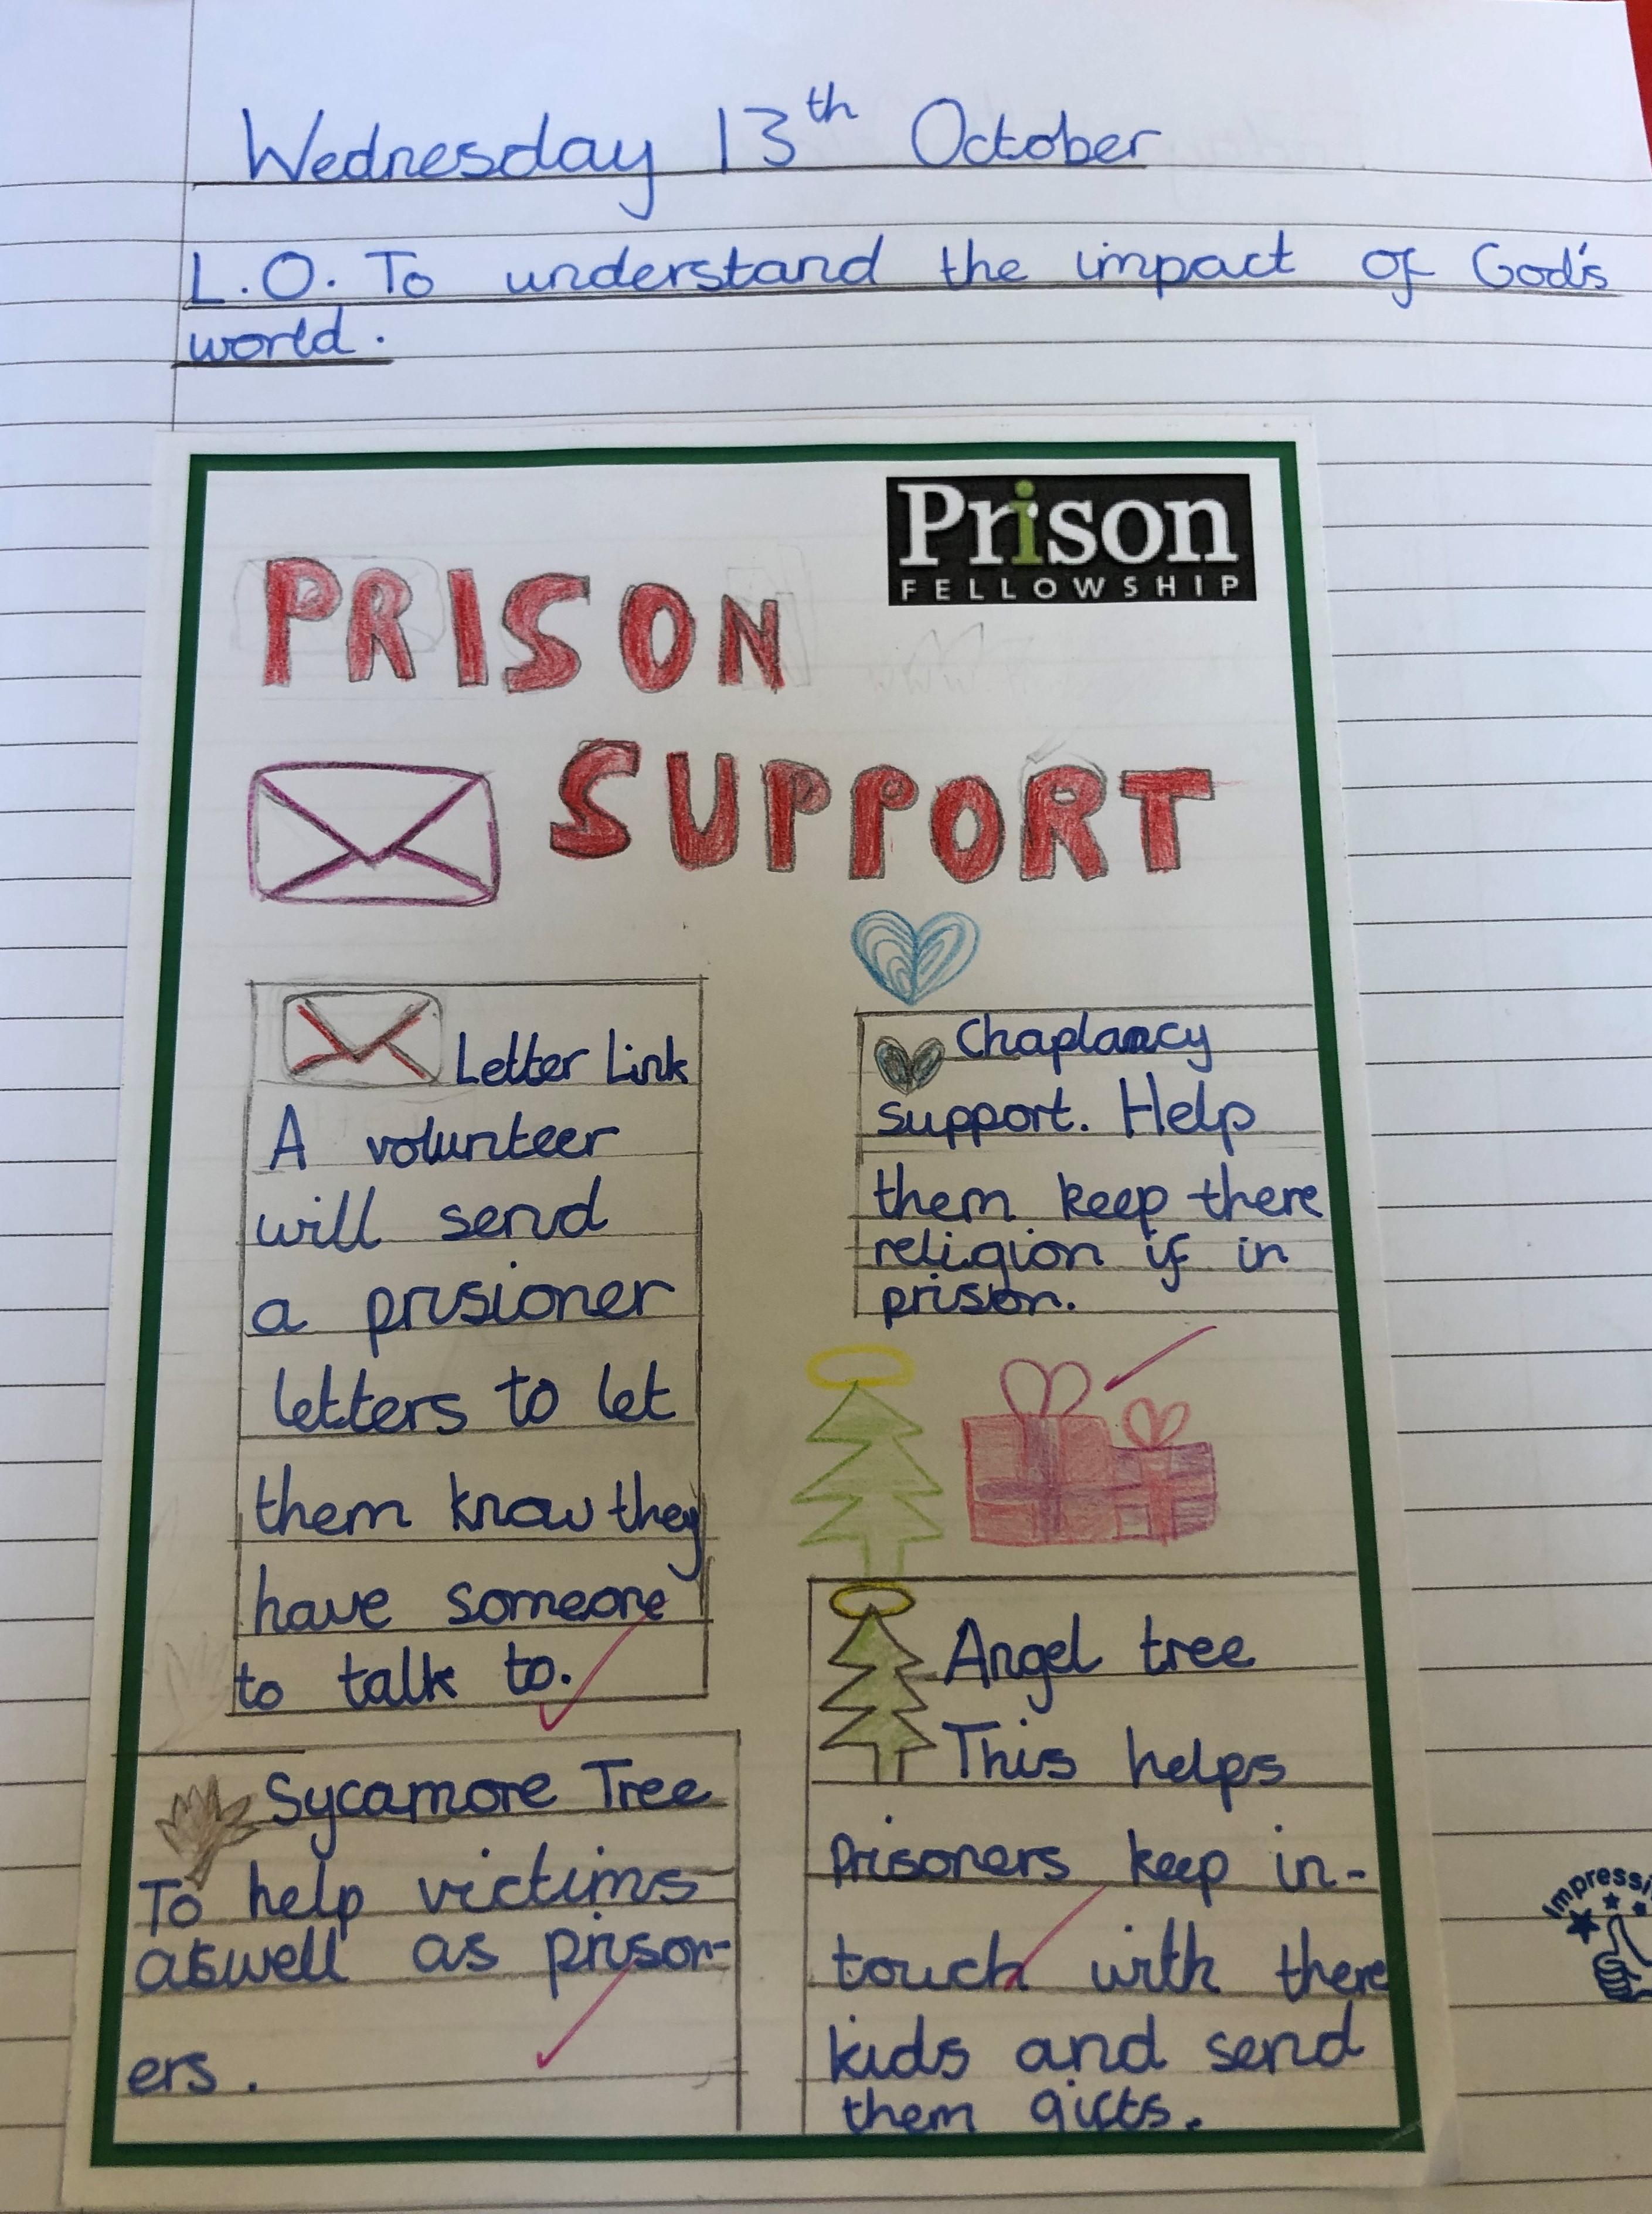 Wednesday 13th October
L.O. To understand the impact of God's
world.
Prison
FELLOWSHIP
PRISON
SUPPORT
Letter Link
A volunteer
will send
a prisioner
letters to let
them know they
have someone
to talk to.
Chaplancy
support. Help
them keep there
religion if in
prison.
Sycamore Tree
To help victims
aswell as prison-
ers.
Angel tree
This helps
Prisoners keep in-
touch with there
kids and send
them gifts.
Impressi